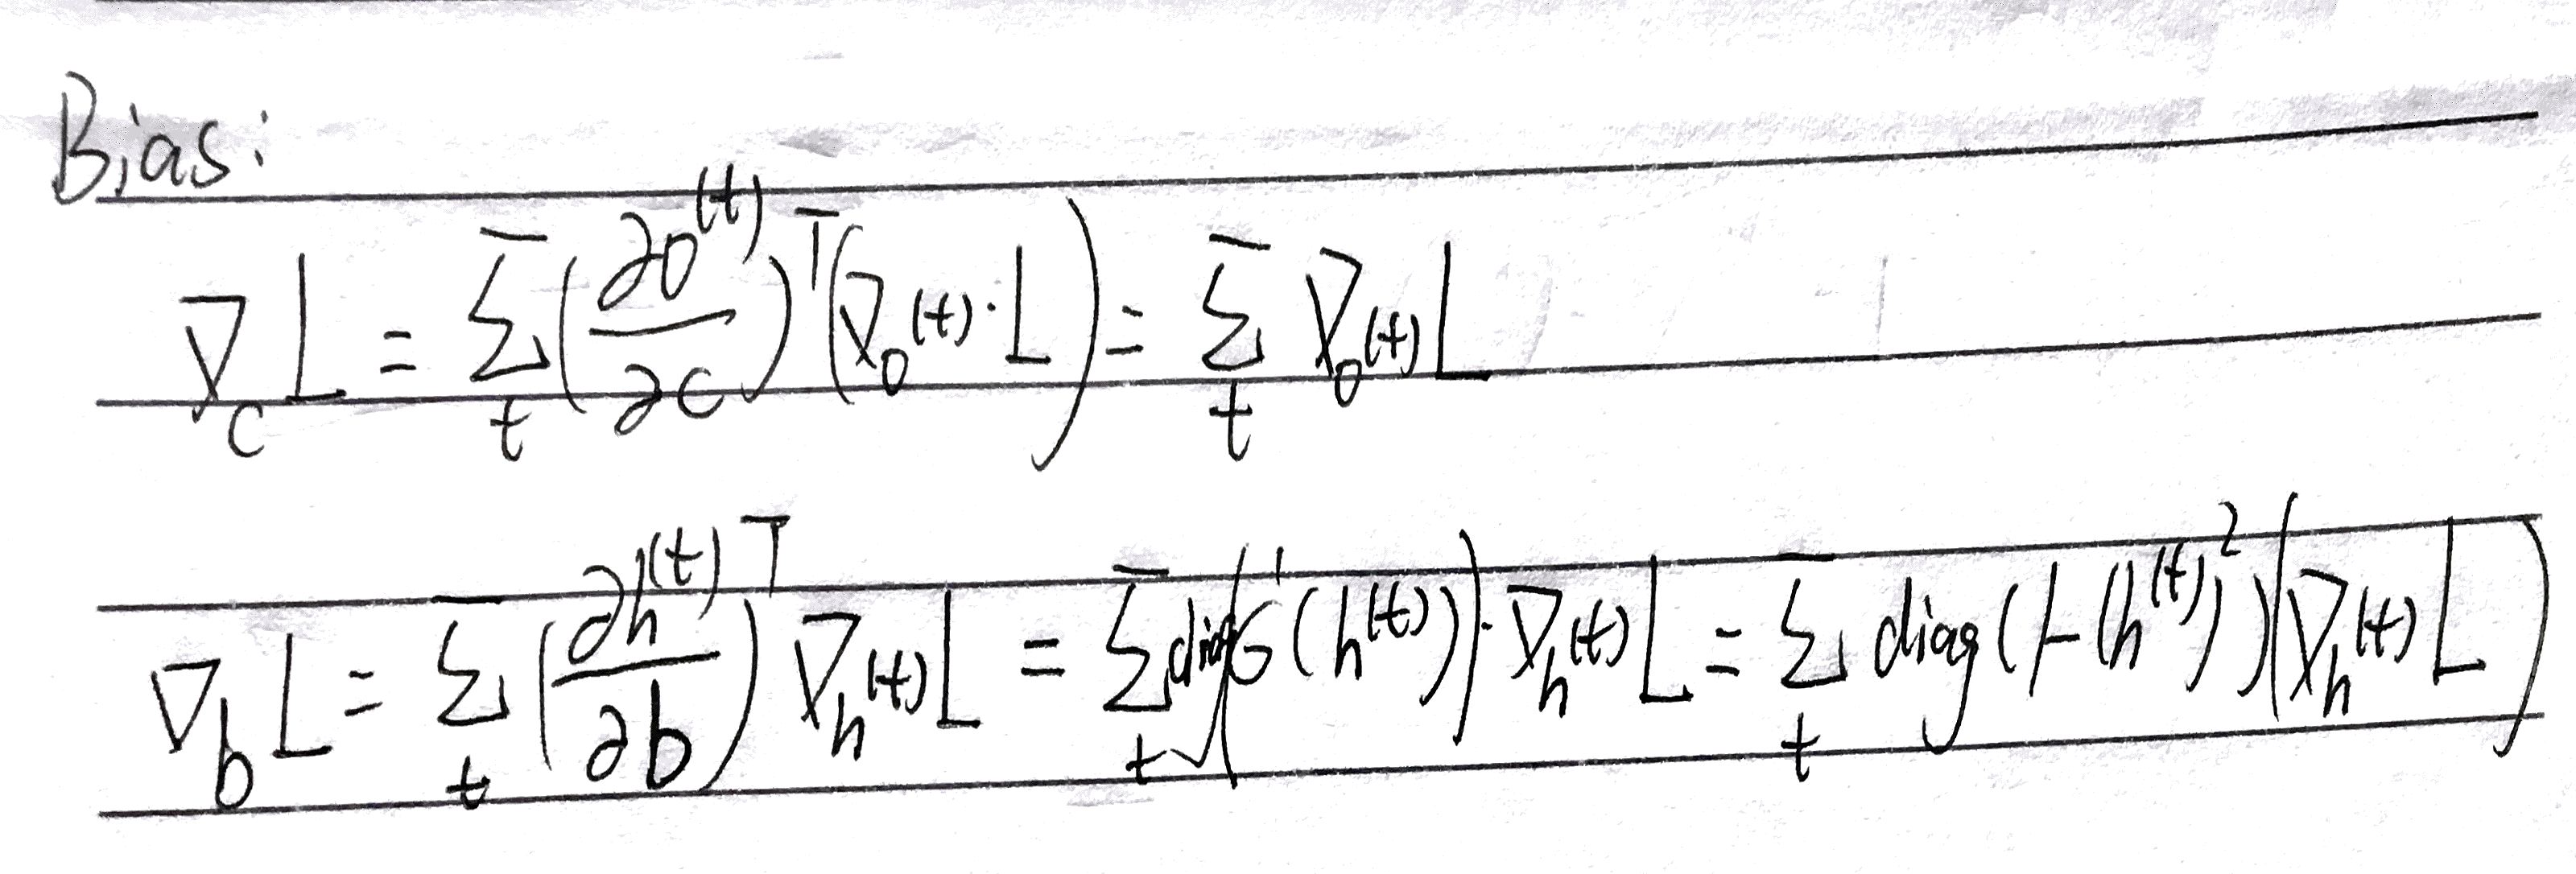 Bias:
∇_c L = Σ_t (∂o^(t)/∂c)^T (∇_o^(t) · L) = Σ_t ∇_o^(t) L
∇_b L = Σ_t (∂h^(t)/∂b)^T ∇_h^(t) L = Σ_t diag(σ'(h^(t))) · ∇_h^(t) L = Σ_t diag(1-(h^(t))^2)(∇_h^(t) L)